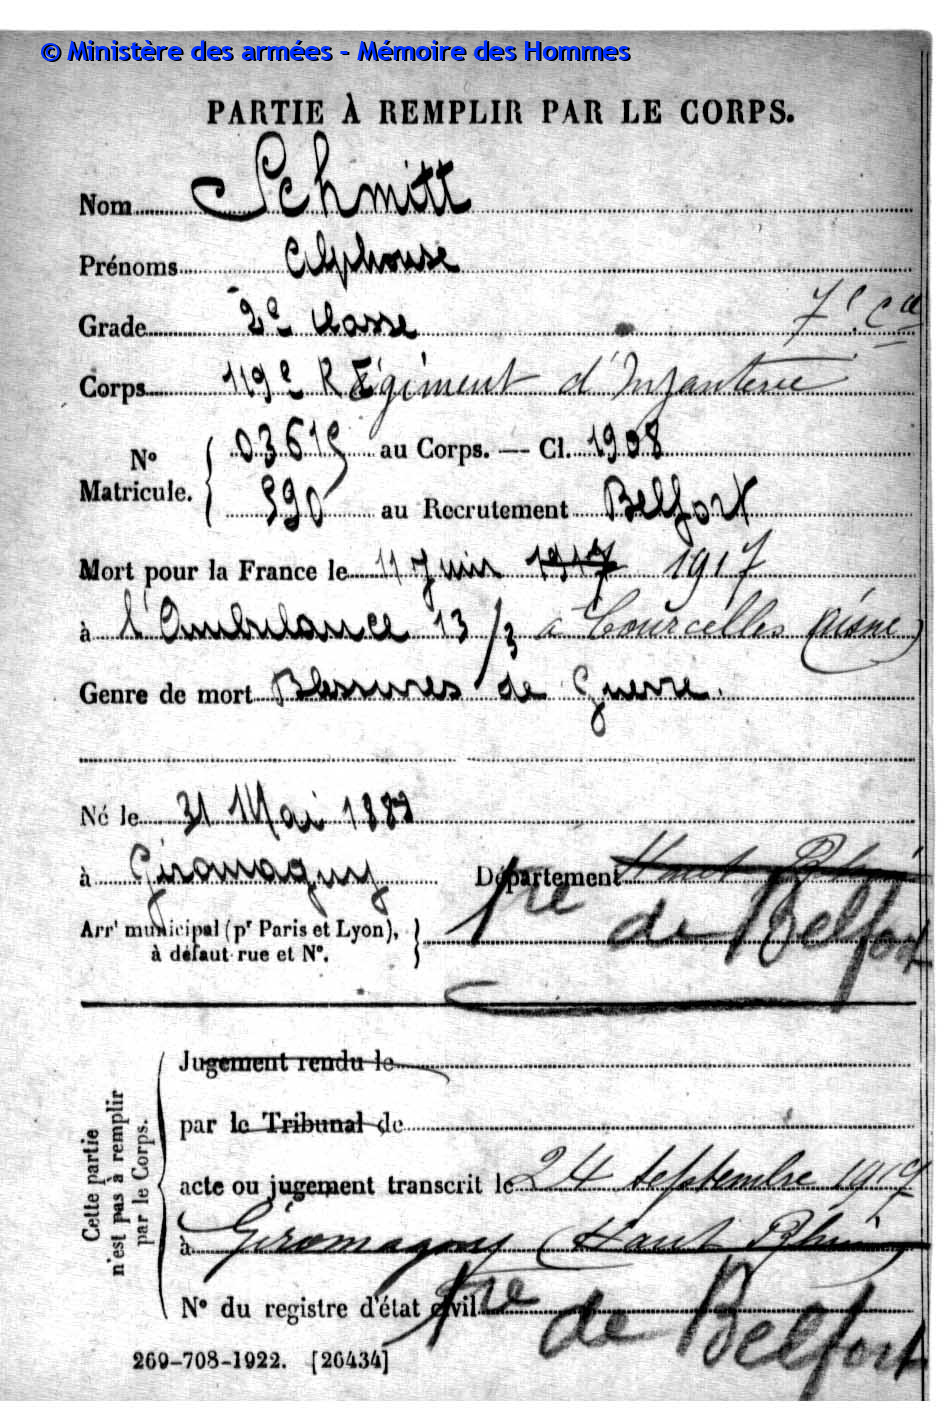 © Ministère des armées - Mémoire des Hommes
PARTIE À REMPLIR PAR LE CORPS.
Nom Schmitt
Prénoms Alphonse
Grade 2e classe 7e Cie
Corps 119e Régiment d'Infanterie
No Matricule. 03619 au Corps. — Cl. 1908
590 au Recrutement Belfort
Mort pour la France le 11 Juin 1917 1917
à l'Ambulance 13/3 à Courcelles (Aisne)
Genre de mort Blessures de Guerre.
Né le 31 Mai 1888
à Giromagny Département Haut Rhin
Arrt municipal (pr Paris et Lyon), à défaut rue et No. Tre de Belfort
Cette partie n'est pas à remplir par le Corps.
Jugement rendu le
par le Tribunal de
acte ou jugement transcrit le 24 septembre 1917
à Giromagny (Haut Rhin)
No du registre d'état civil Tre de Belfort
269-708-1922. [26434]